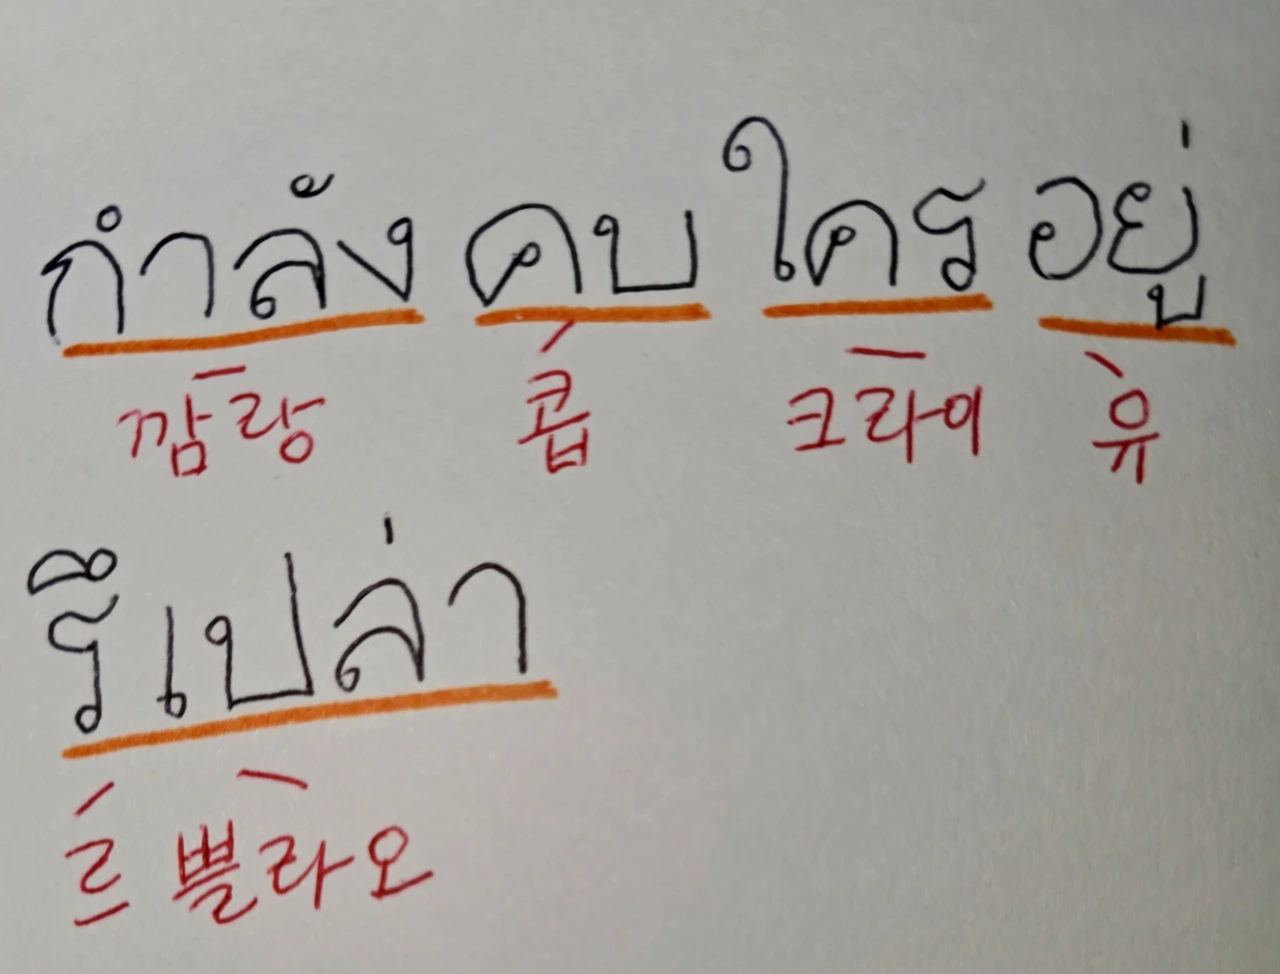 กำลัง คบ ใคร อยู่
깜랑 콥 크라이 유
รึเปล่า
르 쁠라오